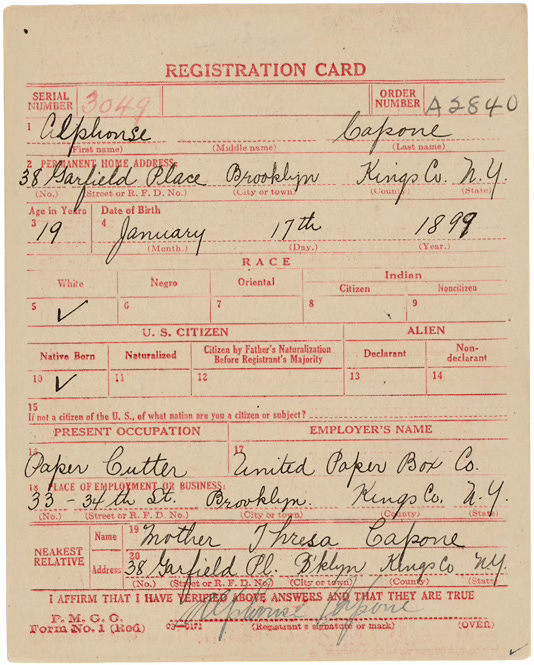 REGISTRATION CARD
SERIAL NUMBER 3049 ORDER NUMBER A2840
1 Alphonse Capone
(First name) (Middle name) (Last name)
2 PERMANENT HOME ADDRESS:
38 Garfield Place Brooklyn Kings Co. N.Y.
(No.) (Street or R. F. D. No.) (City or town) (County) (State)
Age in Years Date of Birth
3 4
19 January 17th 1899
(Month.) (Day.) (Year.)
RACE
White Negro Oriental Indian
Citizen Noncitizen
5 ✓ 6 7 8 9
U. S. CITIZEN ALIEN
Native Born Naturalized Citizen by Father's Naturalization Before Registrant's Majority Declarant Non-declarant
10 ✓ 11 12 13 14
15
If not a citizen of the U. S., of what nation are you a citizen or subject?
PRESENT OCCUPATION EMPLOYER'S NAME
16 17
Paper Cutter United Paper Box Co.
18 PLACE OF EMPLOYMENT OR BUSINESS:
33 - 34th St. Brooklyn. Kings Co. N.Y.
(No.) (Street or R. F. D. No.) (City or town) (County) (State)
NEAREST RELATIVE
Name 19 Mother Thresa Capone
Address 20 38 Garfield Pl. B'klyn Kings Co NY.
(No.) (Street or R. F. D. No.) (City or town) (County) (State)
I AFFIRM THAT I HAVE VERIFIED ABOVE ANSWERS AND THAT THEY ARE TRUE
P. M. G. O.
Form No. 1 (Red) Alphonse Capone
(Registrant's signature or mark) (OVER)